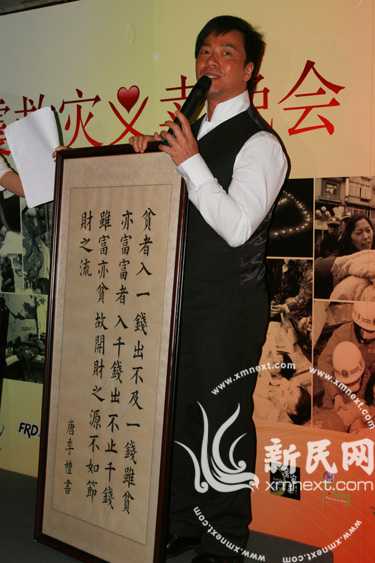 震救灾义卖晚会
貧者入一錢出不及一錢雖貧
亦富富者入千錢出不止千錢
雖富亦貧故開財之源不如節
財之流
唐季禮書
FRD
www.xmnext.com
www.xmnext.com
新民网
xmnext.com
www.xmnext.com
www.xmnext.com